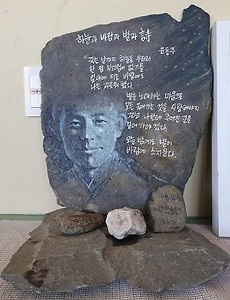 하늘과 바람과 별과 詩
윤동주
죽는 날까지 하늘을 우러러
한 점 부끄럼이 없기를
잎새에 이는 바람에도
나는 괴로워 했다.
별을 노래하는 마음으로
모든 죽어가는 것을 사랑해야지
그리고 나한테 주어진 길을
걸어가야겠다.
오늘 밤에도 별이
바람에 스치운다.